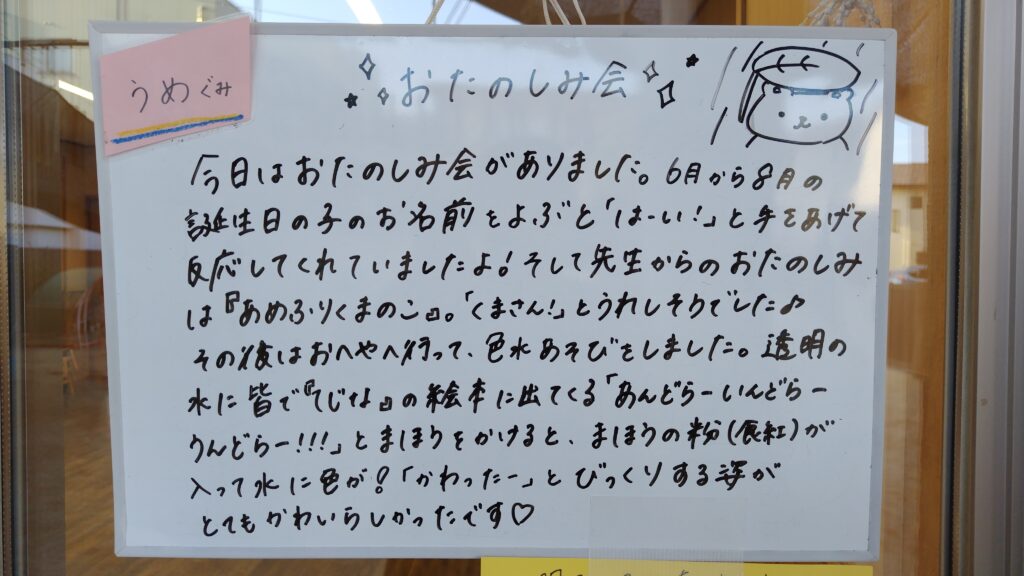 うめぐみ
おたのしみ会
今日はおたのしみ会がありました。6月から8月の
誕生日の子のお名前をよぶと「はーい!」と手をあげて
反応してくれていましたよ!そして先生からのおたのしみ
は『あめふりくまのこ』。「くまさん!」とうれしそうでした♪
その後はおへやへ行って、色水あそびをしました。透明の
水に皆で『てじな』の絵本に出てくる「あんどらーいんどらー
うんどらー!!!」とまほうをかけると、まほうの粉(食紅)が
入って水に色が!「かわったー」とびっくりする姿が
とてもかわいらしかったです♡